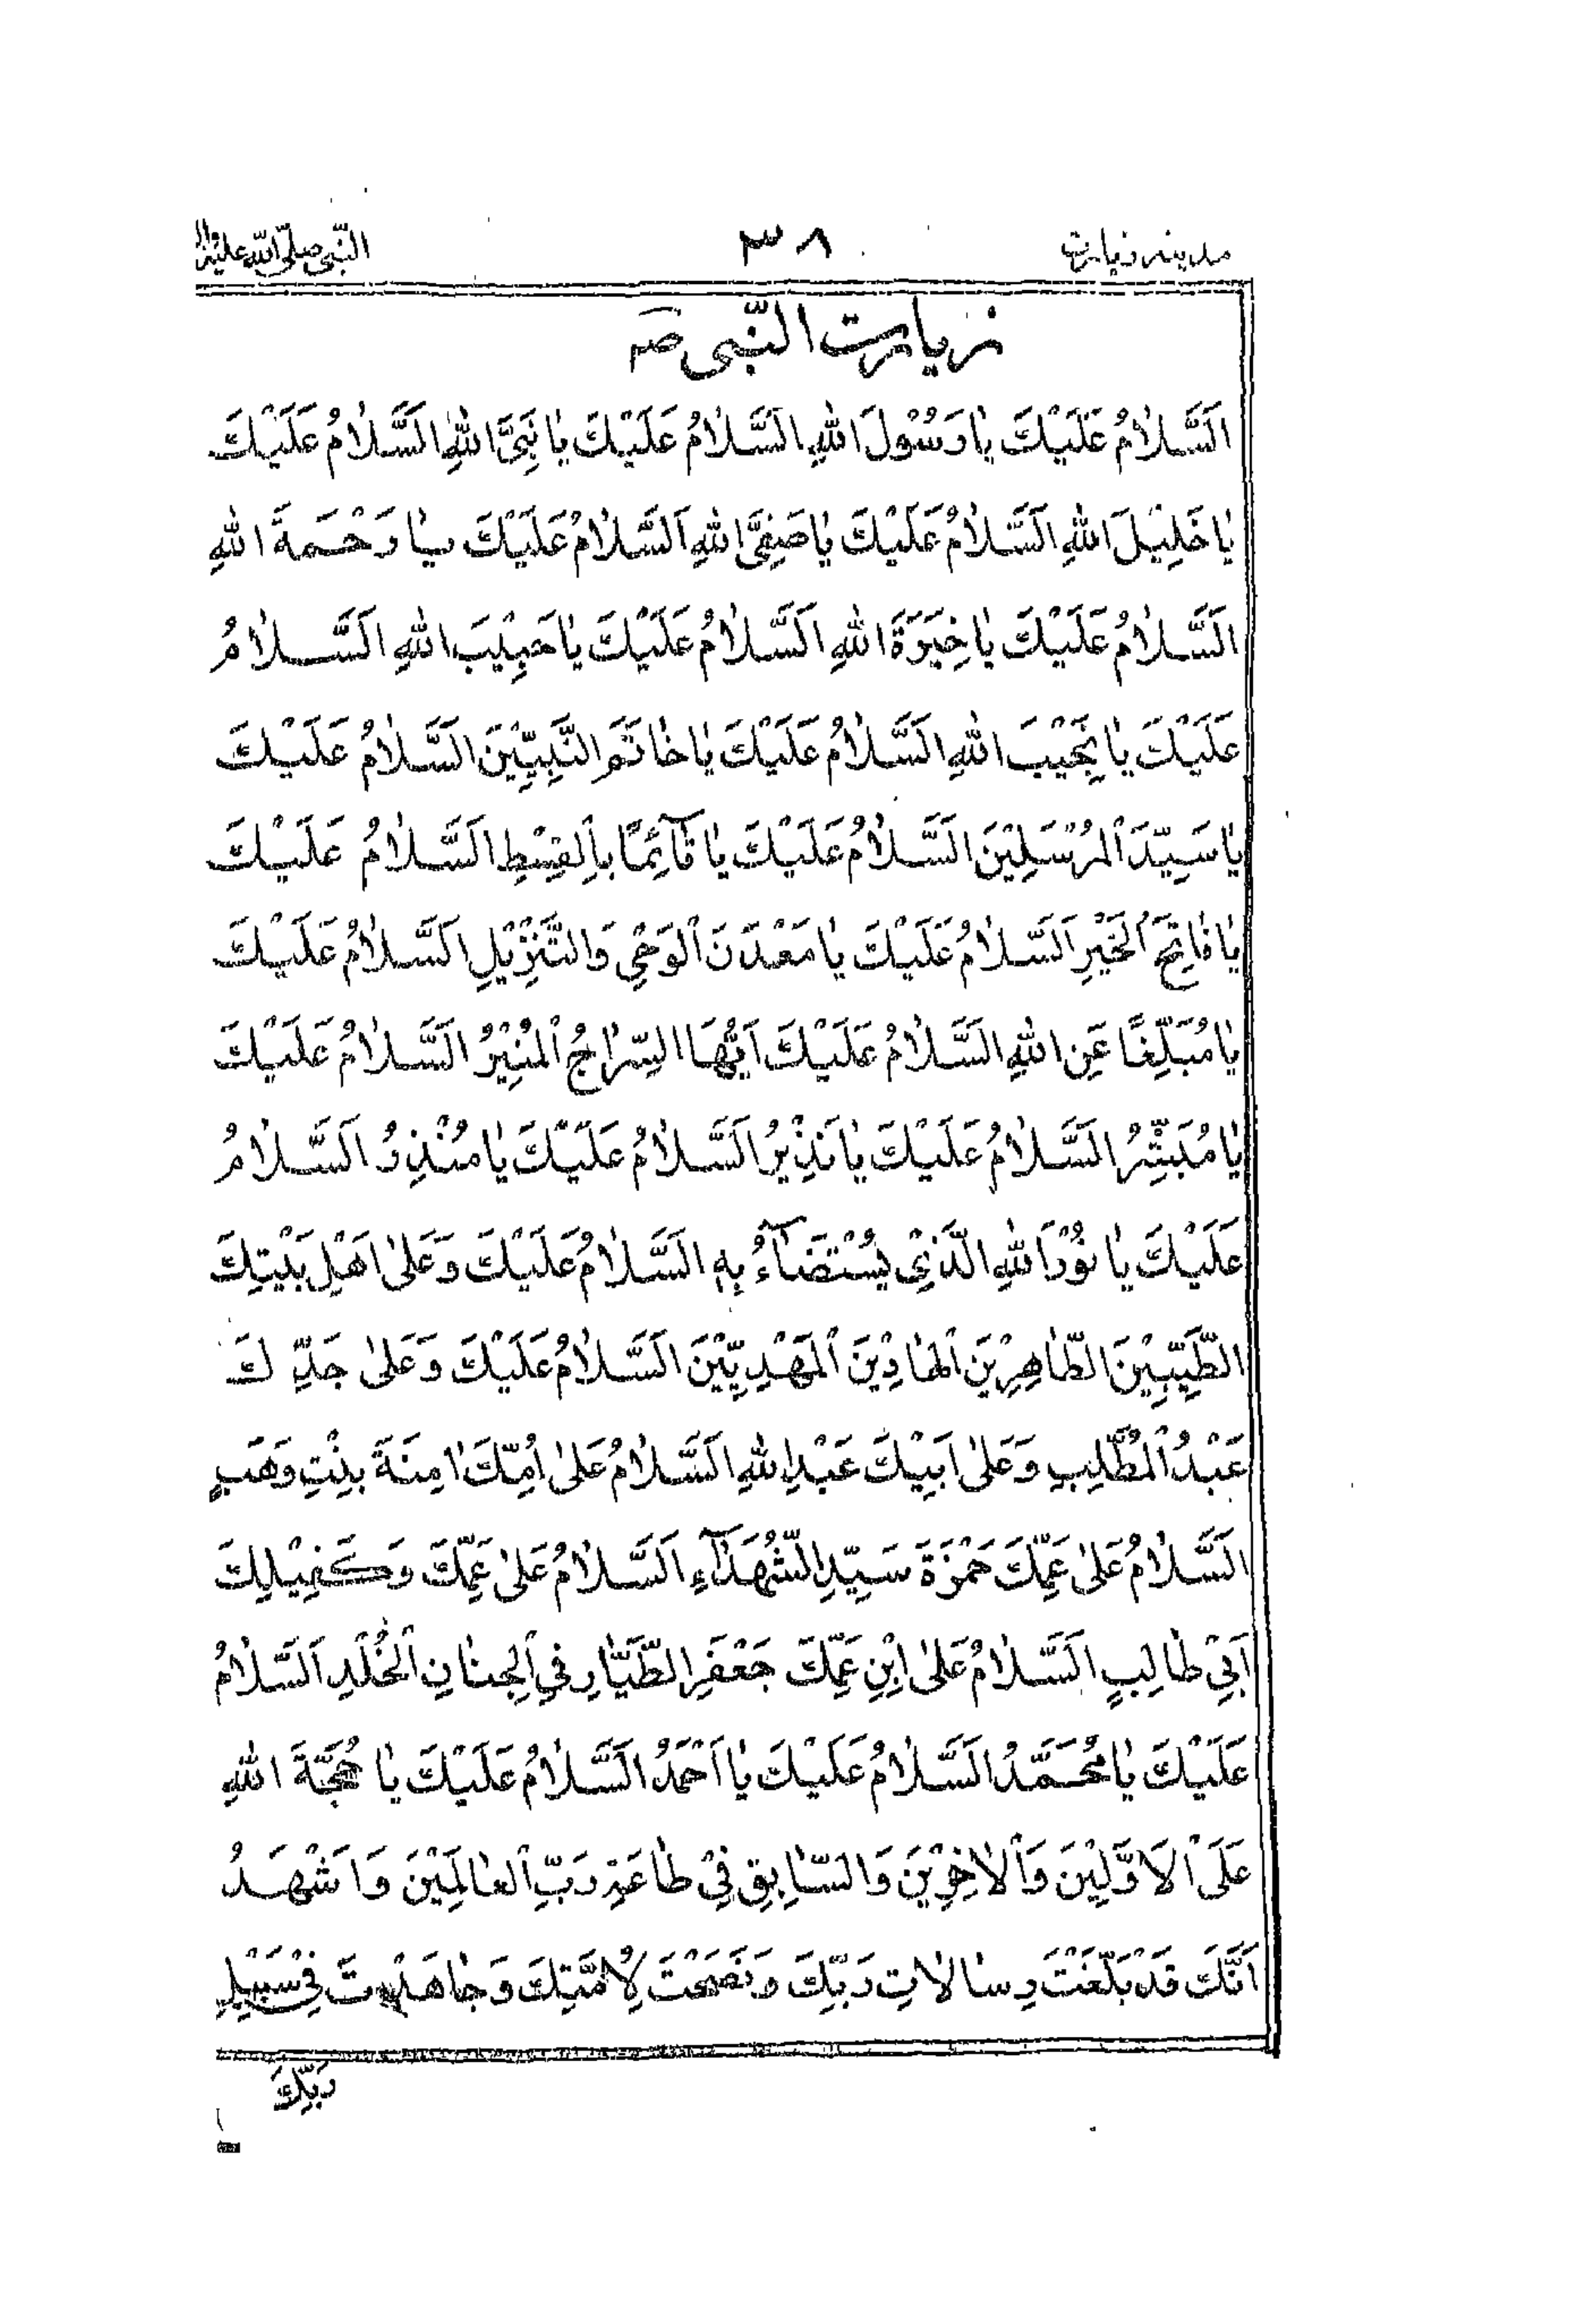 مدینہ زیارت ۳۸ النّبی صلّی اللّٰہ علیہ واٰلہ
زیارت النّبی ص
اَلسَّلٰامُ عَلَیْكَ یٰا رَسُوْلَ اللّٰهِ اَلسَّلٰامُ عَلَیْكَ یٰا نَبِیَّ اللّٰهِ اَلسَّلٰامُ عَلَیْكَ
یٰا خَلِیْلَ اللّٰهِ اَلسَّلٰامُ عَلَیْكَ یٰا صَفِیَّ اللّٰهِ اَلسَّلٰامُ عَلَیْكَ یٰا رَحْمَةَ اللّٰهِ
اَلسَّلٰامُ عَلَیْكَ یٰا خِیَرَةَ اللّٰهِ اَلسَّلٰامُ عَلَیْكَ یٰا حَبِیْبَ اللّٰهِ اَلسَّلٰامُ
عَلَیْكَ یٰا نَجِیْبَ اللّٰهِ اَلسَّلٰامُ عَلَیْكَ یٰا خٰاتَمَ النَّبِیِّیْنَ اَلسَّلٰامُ عَلَیْكَ
یٰا سَیِّدَ الْمُرْسَلِیْنَ اَلسَّلٰامُ عَلَیْكَ یٰا قٰآئِمًا بِالْقِسْطِ اَلسَّلٰامُ عَلَیْكَ
یٰا فٰاتِحَ الْخَیْرِ اَلسَّلٰامُ عَلَیْكَ یٰا مَعْدَنَ الْوَحْیِ وَالتَّنْزِیْلِ اَلسَّلٰامُ عَلَیْكَ
یٰا مُبَلِّغًا عَنِ اللّٰهِ اَلسَّلٰامُ عَلَیْكَ اَیُّهَا السِّرٰاجُ الْمُنِیْرُ اَلسَّلٰامُ عَلَیْكَ
یٰا مُبَشِّرُ اَلسَّلٰامُ عَلَیْكَ یٰا نَذِیْرُ اَلسَّلٰامُ عَلَیْكَ یٰا مُنْذِرُ اَلسَّلٰامُ
عَلَیْكَ یٰا نُوْرَ اللّٰهِ الَّذِیْ یُسْتَضٰآءُ بِهِ اَلسَّلٰامُ عَلَیْكَ وَعَلیٰ اَهْلِ بَیْتِكَ
الطَّیِّبِیْنَ الطّٰاهِرِیْنَ الْهٰادِیْنَ الْمَهْدِیِّیْنَ اَلسَّلٰامُ عَلَیْكَ وَعَلیٰ جَدِّكَ
عَبْدُ الْمُطَّلِبِ وَعَلیٰ اَبِیْكَ عَبْدِ اللّٰهِ اَلسَّلٰامُ عَلیٰ اُمِّكَ اٰمِنَةَ بِنْتِ وَهَبٍ
اَلسَّلٰامُ عَلیٰ عَمِّكَ حَمْزَةَ سَیِّدِ الشُّهَدٰآءِ اَلسَّلٰامُ عَلیٰ عَمِّكَ وَكَفِیْلِكَ
اَبِیْ طٰالِبٍ اَلسَّلٰامُ عَلیٰ ابْنِ عَمِّكَ جَعْفَرِ الطَّیّٰارِ فِي الْجِنٰانِ الْخُلْدِ اَلسَّلٰامُ
عَلَیْكَ یٰا مُحَمَّدُ اَلسَّلٰامُ عَلَیْكَ یٰا اَحْمَدُ اَلسَّلٰامُ عَلَیْكَ یٰا حُجَّةَ اللّٰهِ
عَلَی الْاَوَّلِیْنَ وَالْاٰخِرِیْنَ وَالسّٰابِقِ فِیْ طٰاعَةِ رَبِّ الْعٰالَمِیْنَ وَاَشْهَدُ
اَنَّكَ قَدْ بَلَّغْتَ رِسٰالٰاتِ رَبِّكَ وَنَصَحْتَ لِاُمَّتِكَ وَجٰاهَدْتَ فِیْ سَبِیْلِ
رَبِّكَ